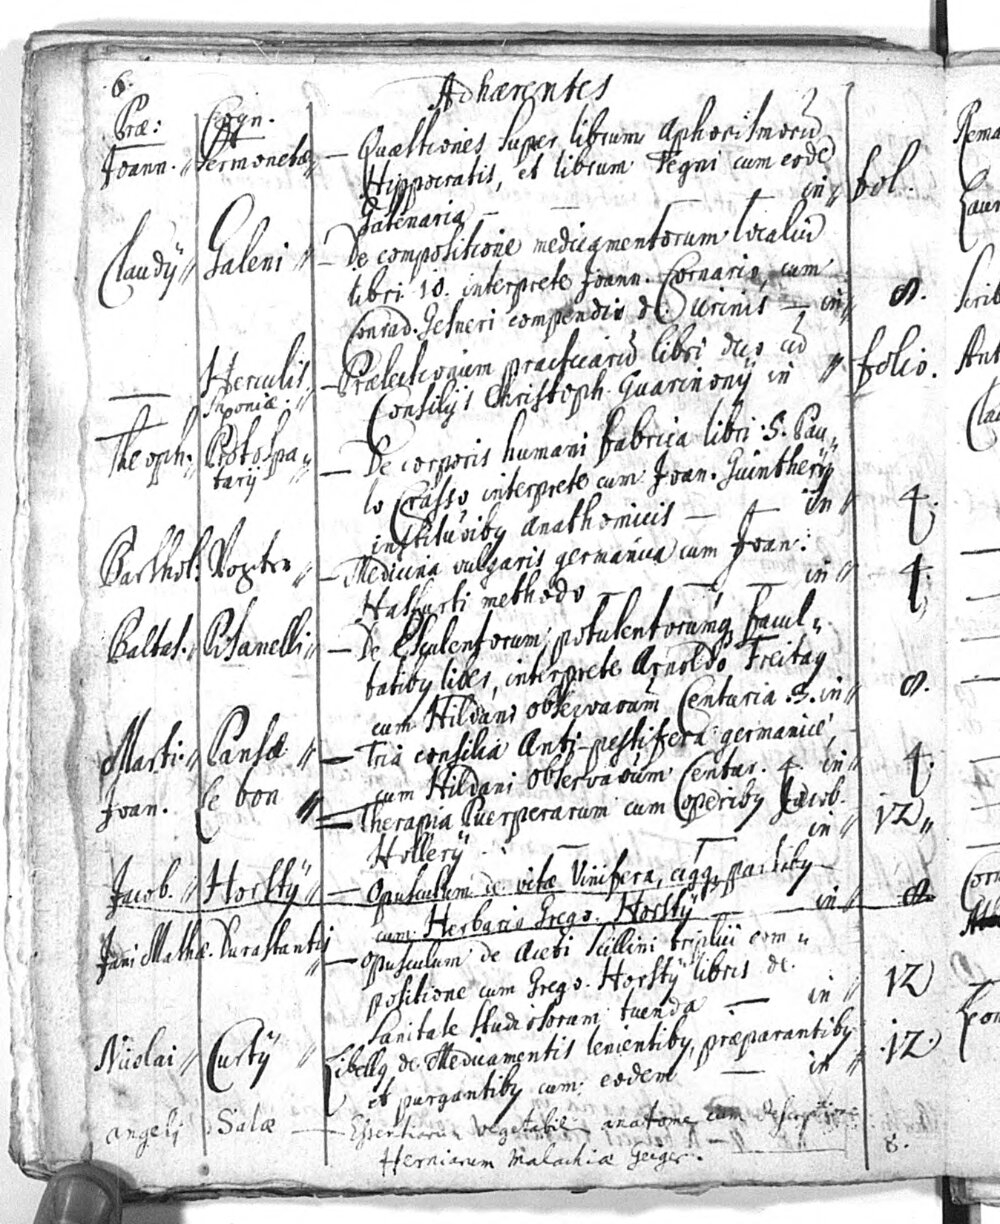 6.
Adhærentes
Præ: Cogn.
Joann. Sermonetæ — Quæstiones super librum Aphorismorū
Hippocratis, et librum Tegni cum eodē
Galenaria — — in fol.
Claudÿ Galeni — De compositione medicamentorum localiū
libri 10. interprete Joann. Cornario, cum
Conrad. Gesneri compendio de Urinis — in 8.
— Herculis — Prælectionum practicarū libri duo cū
Saxoniæ. Consilÿs Christoph. Guarinonÿ in folio.
Theoph. Protospa — De corporis humani fabrica libri 5. Pau
tarÿ lo Crasso interprete cum Joan. Guintherÿ
institutiōibꝫ anathomicis — — in 4.
Barthol. — Medicina vulgaris germanica cum Joan:
methodo — — in 4.
Baltas. Pisanelli — De Esculentorum, potulentorumqꝫ facul
tatibꝫ liber, interprete Arnoldo Freitag
cum Hildani observatōum Centuria 3. in 8.
Marti. Pansæ — Tria consilia Anti-pestifera germanicè,
cum Hildani Observatōum Centur. 4 in 4.
Joan. le bon — Therapia Puerperarum cum Operibꝫ Jacob.
Hollerÿ — — in 12
Jacob. Horstÿ — Opusculum de vite Vinifera, eiqꝫ partibꝫ
cum Herbario Grego. Horstÿ — in 8.
Jani Mathæ. Durastantis — Opusculum de Aceti Scillini triplici com
positione cum Grego. Horstÿ libris de
Sanitate studiosorum tuenda — in 12
Nicolai Curtÿ Libellꝫ de Medicamentis lenientibꝫ, præparantibꝫ
et purgantibꝫ cum eodem — in 12.
angeli Salæ — Essentiarum vegetabil: anatome cum descriptione
Herniarum Malachiæ Geiger. 8.